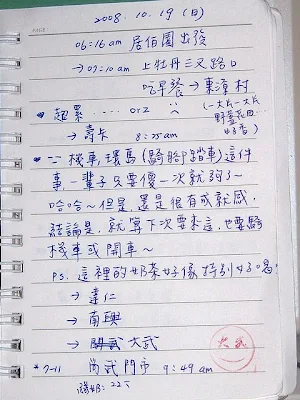 2008.10.19 (日)
06:16 am 居佰園 出發
→ 07:10 am 上牡丹三叉路口
吃早餐 → 東源村
(一大片一大片
野薑花田
好香)
* 超累..... orz
→ 壽卡 8:25am
* 機車環島(騎腳踏車)這件
事,一輩子只要傻一次就夠了~
哈哈~但是,還是很有成就感.
結論是,就算下次要來這,也要騎
機車或開車~
ps. 這裡的奶茶好像特別好喝
→ 達仁
→ 南興
→ 大武
* 7-11 尚武門市 9:49 am
大武